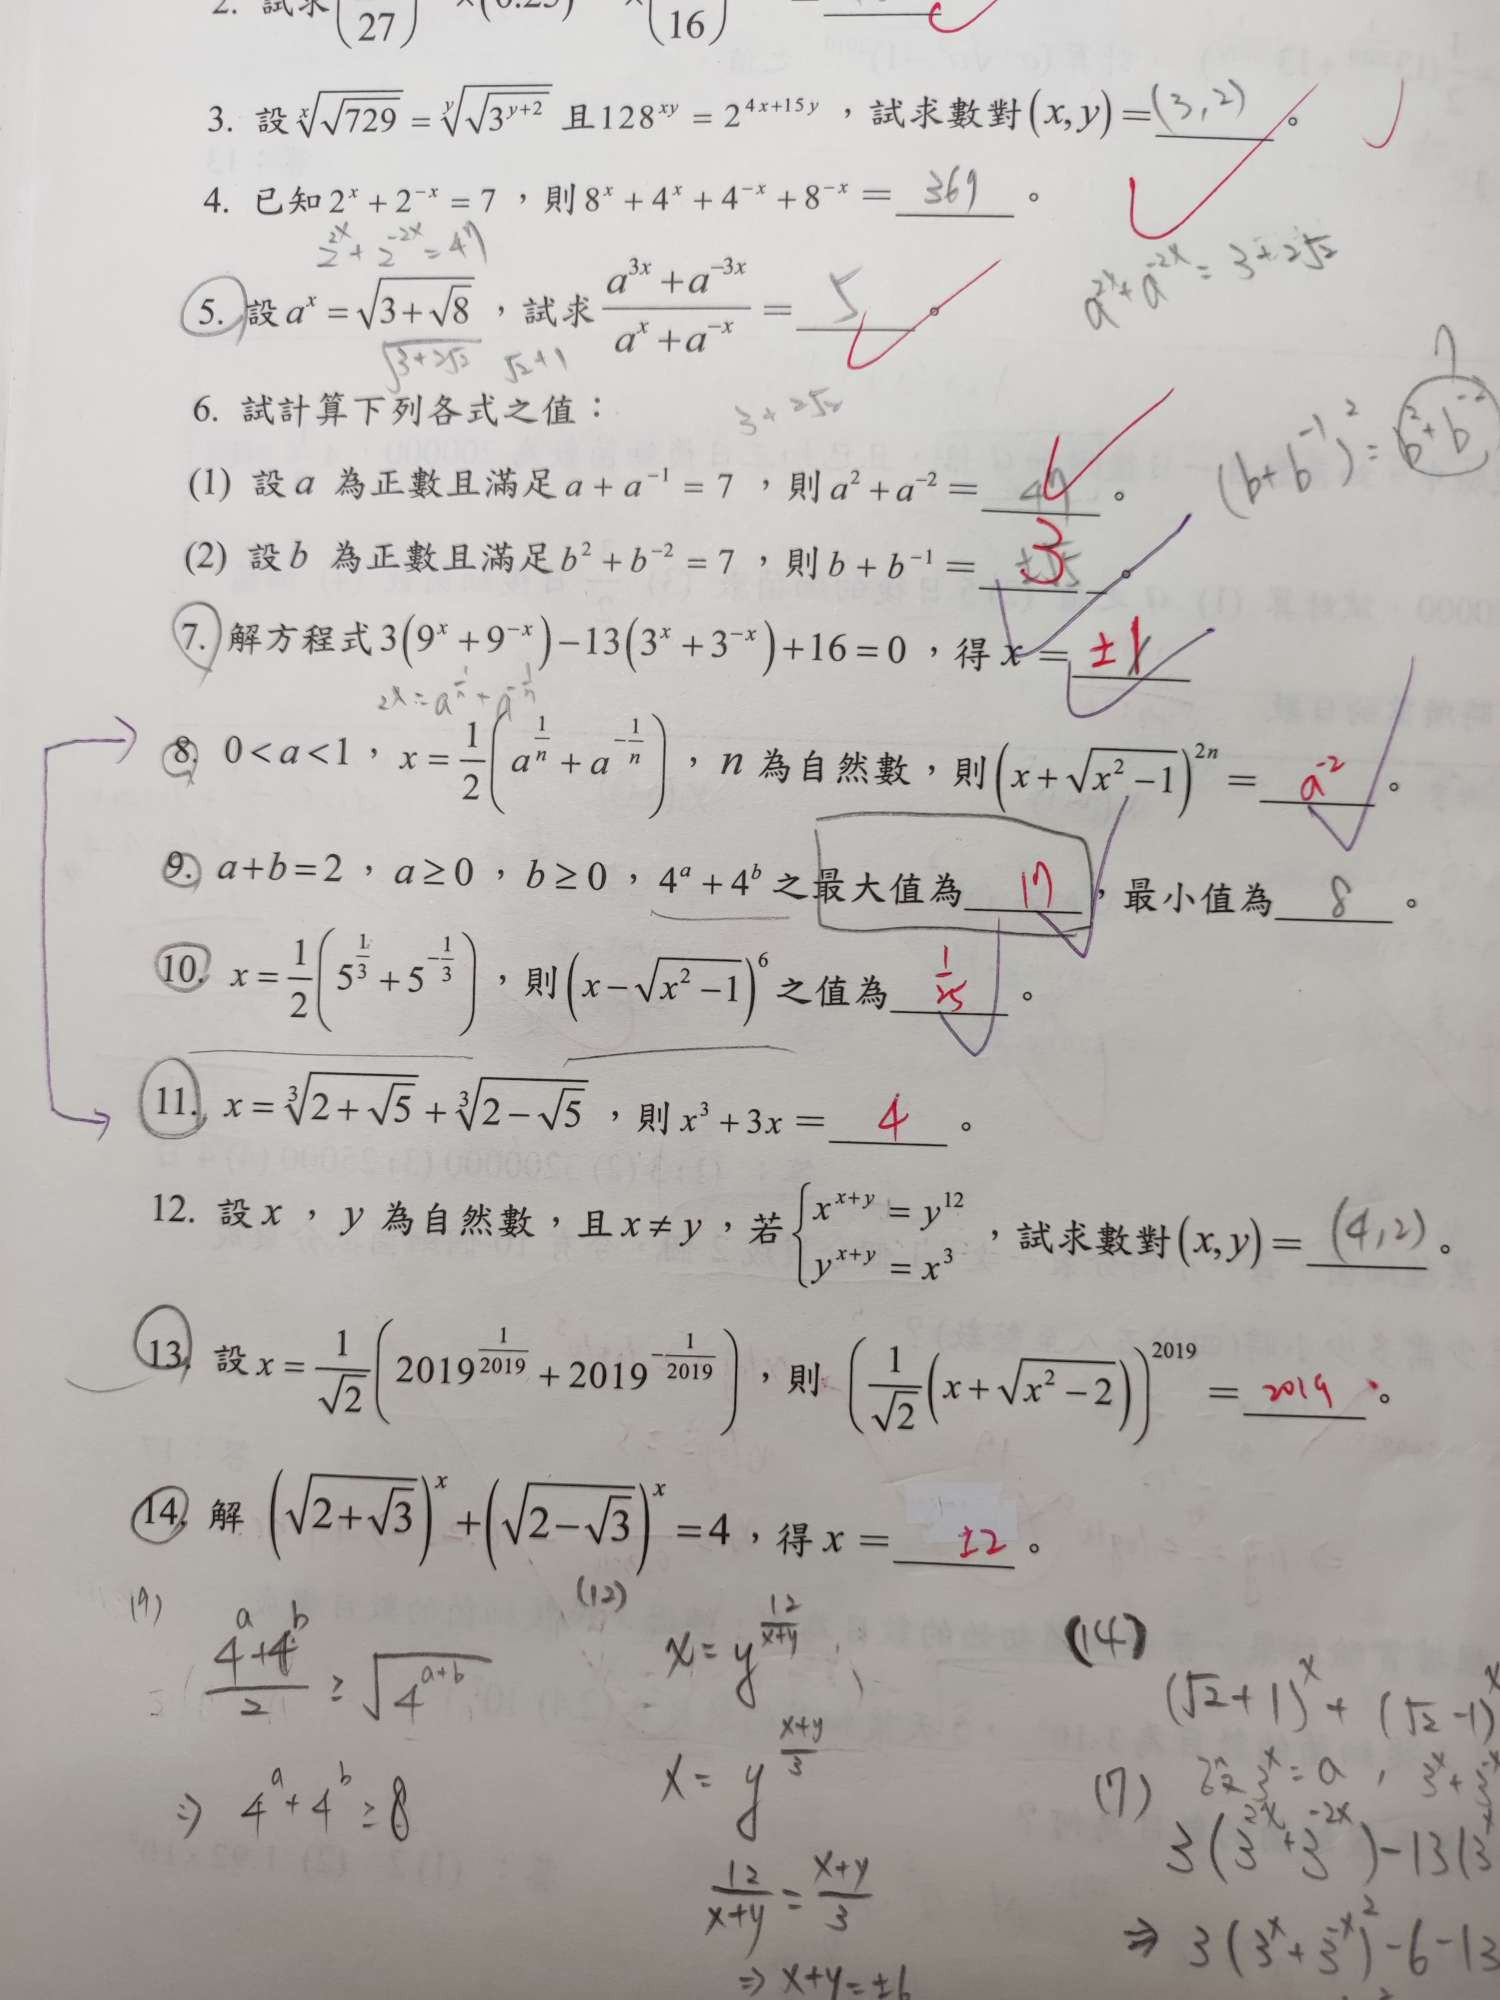 2. 試求(/27) ×(0.25) ×(/16)
3. 設 ˣ√(√729) = ʸ√(√(3^(y+2))) 且 128^(xy) = 2^(4x+15y)，試求數對(x, y) = (3, 2)。
4. 已知 2^x + 2^(-x) = 7，則 8^x + 4^x + 4^(-x) + 8^(-x) = 369。
2^(2x) + 2^(-2x) = 47
a^(2x) + a^(-2x) = 3+2√2
5. 設 a^x = √(3+√8)，試求 (a^(3x) + a^(-3x))/(a^x + a^(-x)) = 5。
√(3+2√2) √2+1
6. 試計算下列各式之值：
3+2√2
7
(b+b^(-1))^2 = b^2+b^(-2)
(1) 設 a 為正數且滿足 a + a^(-1) = 7，則 a^2 + a^(-2) = 47。
(2) 設 b 為正數且滿足 b^2 + b^(-2) = 7，則 b + b^(-1) = 3。
7. 解方程式 3(9^x + 9^(-x)) − 13(3^x + 3^(-x)) + 16 = 0，得 x = ±1
2x = a^(1/n) + a^(-1/n)
8. 0 < a < 1，x = 1/2(a^(1/n) + a^(-1/n))，n 為自然數，則 (x + √(x^2 − 1))^(2n) = a^(-2)。
9. a + b = 2，a ≥ 0，b ≥ 0，4^a + 4^b 之最大值為 17，最小值為 8。
10. x = 1/2(5^(1/3) + 5^(-1/3))，則 (x − √(x^2 − 1))^6 之值為 1/25。
11. x = ³√(2+√5) + ³√(2−√5)，則 x^3 + 3x = 4。
12. 設 x，y 為自然數，且 x ≠ y，若 { x^(x+y) = y^12 , y^(x+y) = x^3，試求數對(x, y) = (4, 2)。
13. 設 x = 1/√2(2019^(1/2019) + 2019^(-1/2019))，則 (1/√2(x + √(x^2 − 2)))^2019 = 2019。
14. 解 (√(2+√3))^x + (√(2−√3))^x = 4，得 x = ±2。
(9)
(4^a+4^b)/2 ≥ √(4^(a+b))
⇒ 4^a + 4^b ≥ 8
(12)
x = y^(12/(x+y))
x = y^((x+y)/3)
12/(x+y) = (x+y)/3
⇒ x+y = ±6
(14)
(√2+1)^x + (√2−1)^x
(7)
設 3^x = a，3^x + 3^(-x)
3(3^(2x) + 3^(-2x)) − 13(3^x
⇒ 3(3^x + 3^(-x))^2 − 6 − 13